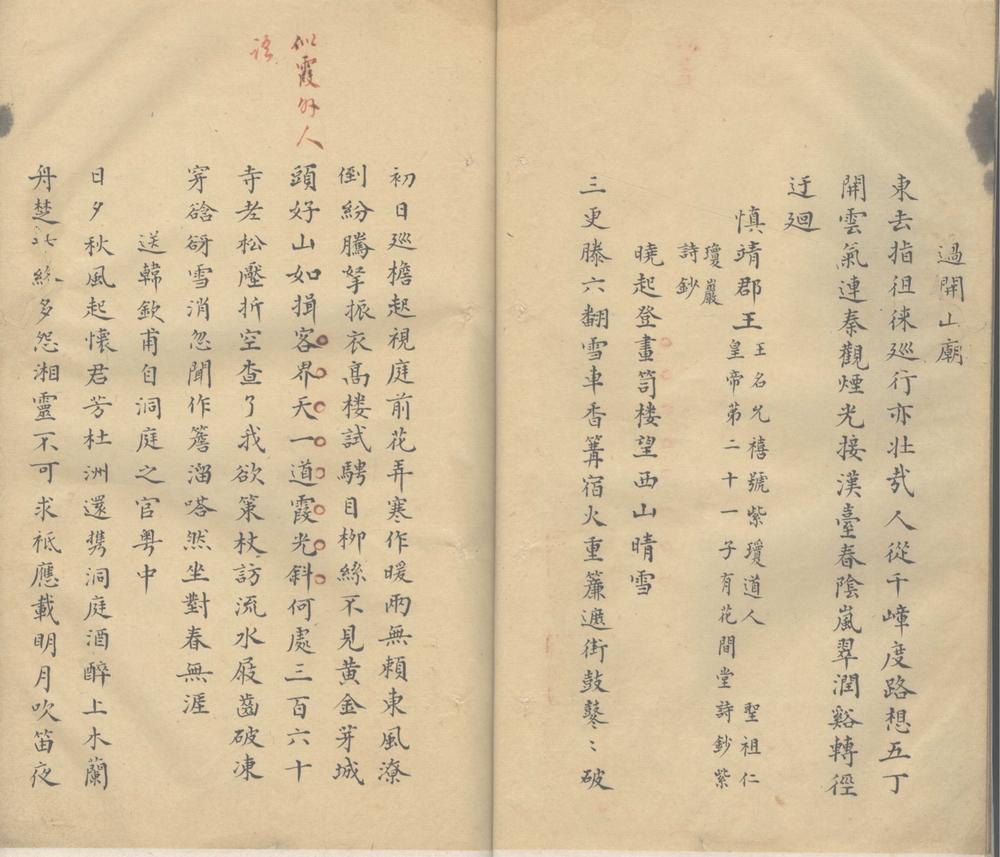 過開山廟
東去指徂徠巡行亦壯哉人從千嶂度路想五丁
開雲氣連秦觀煙光接漢臺春陰嵐翠潤谿轉徑
迂廻
慎靖郡王
王名允禧號紫瓊道人 聖祖仁
皇帝第二十一子有花間堂詩鈔紫
瓊巖
詩鈔
曉起登畫笥楼望西山晴雪
三更滕六翻雪車香篝宿火重簾遮街鼓鼕〻破
初日巡檐起視庭前花弄寒作暖兩無賴東風潦
倒紛騰拏振衣高楼試騁目柳絲不見黄金芽城
頭好山如揖客界天一道霞光斜何處三百六十
寺老松壓折空查了我欲策杖訪流水屐齒破凍
穿谽谺雪消忽聞作簷溜嗒然坐對春無涯
似霞外人
語
送韓欽甫自洞庭之官粤中
日夕秋風起懷君芳杜洲還携洞庭酒醉上木蘭
舟楚絲多怨湘靈不可求祗應載明月吹笛夜